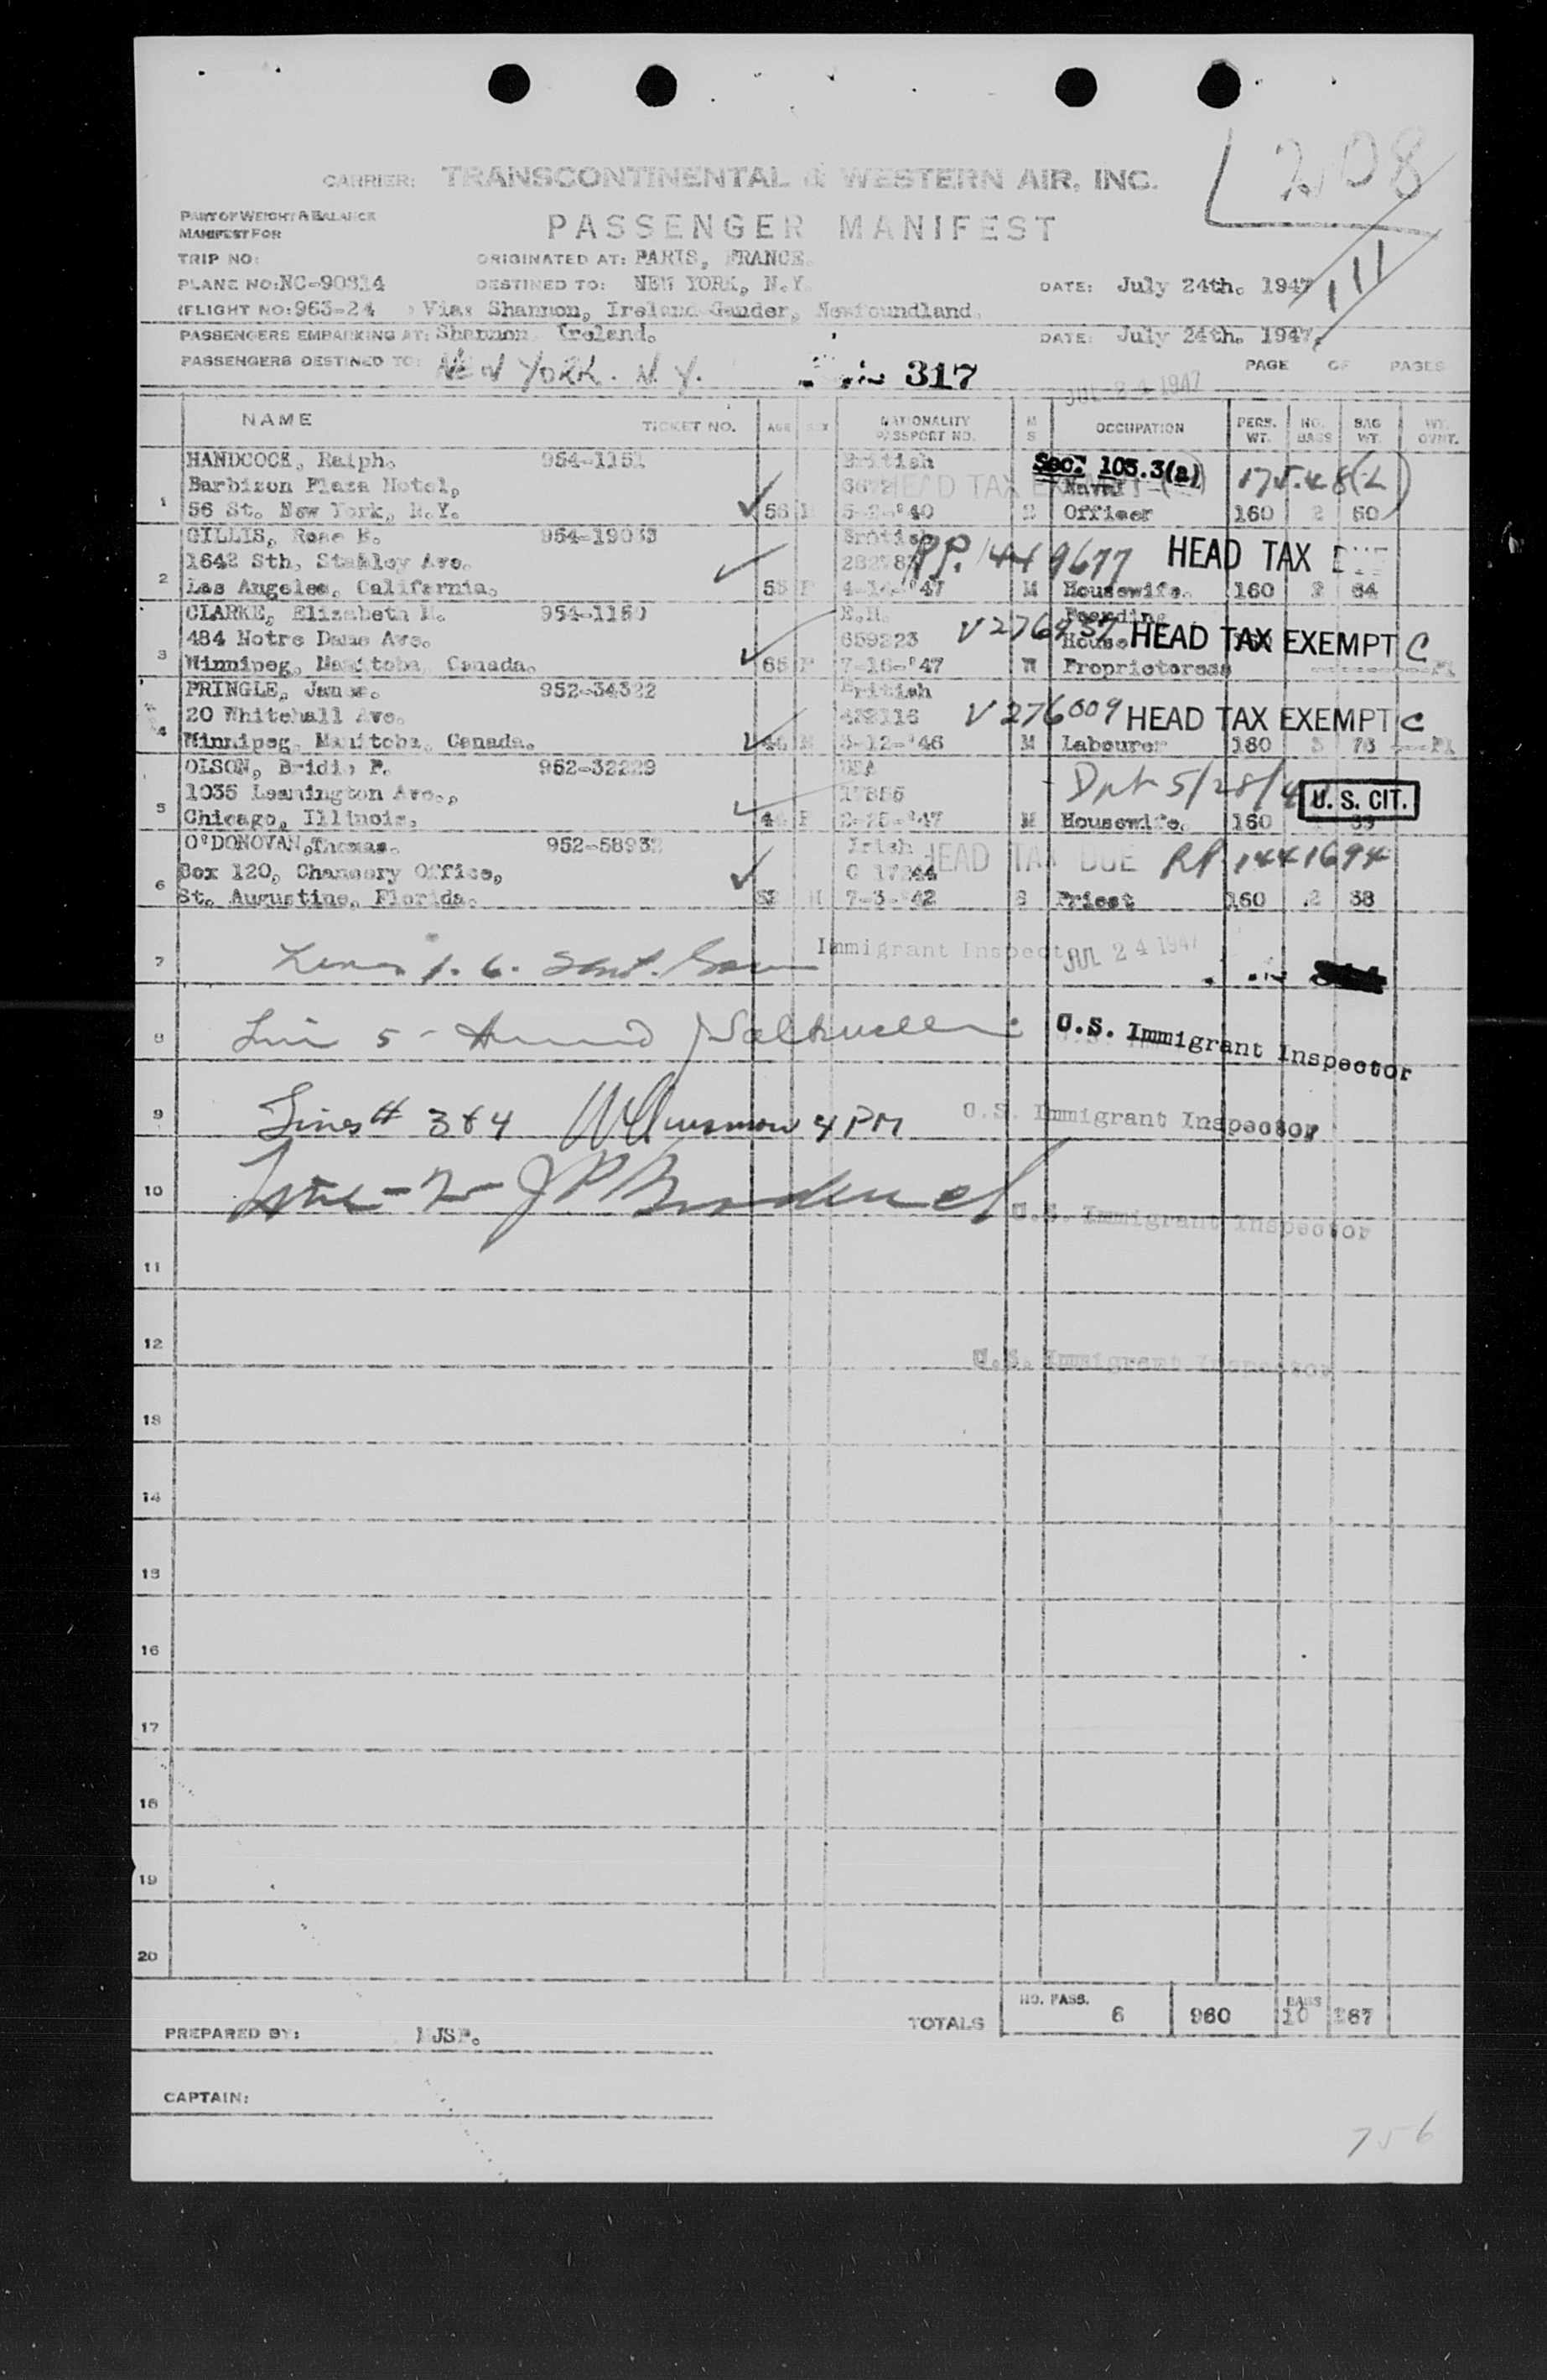 208
111
CARRIER: TRANSCONTINENTAL & WESTERN AIR, INC.
PART OF WEIGHT & BALANCE
MANIFEST FOR
PASSENGER MANIFEST
TRIP NO: ORIGINATED AT: PARIS, FRANCE.
PLANE NO: NC-90814 DESTINED TO: NEW YORK, N.Y. DATE: July 24th. 1947
(FLIGHT NO: 963-24 Via: Shannon, Ireland-Gander, Newfoundland.
PASSENGERS EMBARKING AT: Shannon, Ireland. DATE: July 24th. 1947.
PASSENGERS DESTINED TO: NEW YORK. N.Y. 317 PAGE OF PAGES
JUL 24 1947
NAME TICKET NO. AGE SEX NATIONALITY PASSPORT NO. M S OCCUPATION PERS. WT. NO. BAGS BAG WT. WT. OVNT.
HANDCOCK, Ralph. 954-1151 British Sec. 103.3(a)
Barbizon Plaza Hotel, HEAD TAX Naval
1 56 St. New York, N.Y. 56 M 5-2-'40 Officer 160 2 50
GILLIS, Rose 954-19033 British
1642 Sth, Stanley Ave. RP. 1449677 HEAD TAX DUE
2 Los Angeles, California. 55 F 47 M Housewife. 160 2 84
CLARKE, Elizabeth 954-1150 Boarding
484 Notre Dame Ave. 659223 House HEAD TAX EXEMPT C
3 Winnipeg, Manitoba, Canada. 65 F 7-16-'47 W Proprietoress
PRINGLE, James. 952-34322 British
20 Whitehall Ave. V 276009 HEAD TAX EXEMPT C
4 Winnipeg, Manitoba, Canada. M 3-12-'46 M Labourer 160 3 76
OLSON, Bridie P. 952-32229 USA
1035 Leamington Ave., U. S. CIT.
5 Chicago, Illinois. F 2-25-'47 M Housewife. 160
O'DONOVAN, Thomas. 952-58932 Irish HEAD TAX DUE RP. 1441694
Box 120, Chancery Office, G 17244
6 St. Augustine, Florida. M 7-3-'42 S Priest 160 2 38
7 Immigrant Inspector JUL 24 1947
8 U.S. Immigrant Inspector
9 Lines # 3 & 4 4 PM U.S. Immigrant Inspector
10 U.S. Immigrant Inspector
11
12 U.S. Immigrant Inspector
13
14
15
16
17
18
19
20
TOTALS NO. PASS. 6 960 BAGS 10 267
PREPARED BY:
CAPTAIN:
756